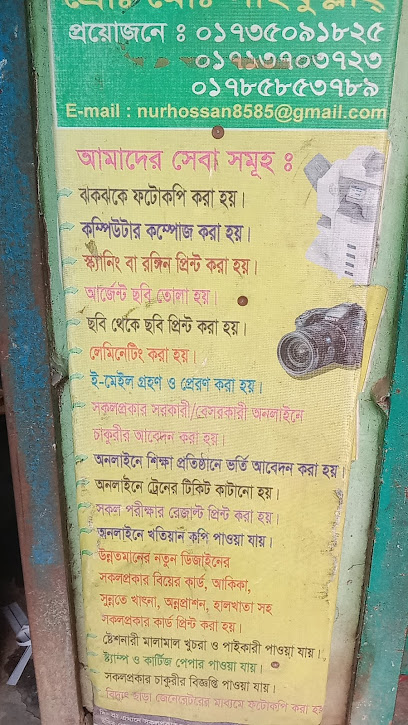 প্রয়োজনে ঃ ০১৭৩৫০৯১৮২৫
০১৭১৩৭০৩৭২৩
০১৭৮৫৮৫৩৭৮৯
E-mail : nurhossan8585@gmail.com
আমাদের সেবা সমূহ ঃ
ঝকঝকে ফটোকপি করা হয়।
কম্পিউটার কম্পোজ করা হয়।
স্ক্যানিং বা রঙ্গিন প্রিন্ট করা হয়।
আর্জেন্ট ছবি তোলা হয়।
ছবি থেকে ছবি প্রিন্ট করা হয়।
লেমিনেটিং করা হয়।
ই-মেইল গ্রহণ ও প্রেরণ করা হয়।
সকলপ্রকার সরকারী/বেসরকারী অনলাইনে
চাকুরীর আবেদন করা হয়।
অনলাইনে শিক্ষা প্রতিষ্ঠানে ভর্তি আবেদন করা হয়।
অনলাইনে ট্রেনের টিকিট কাটানো হয়।
সকল পরীক্ষার রেজাল্ট প্রিন্ট করা হয়।
অনলাইনে খতিয়ান কপি পাওয়া যায়।
উন্নতমানের নতুন ডিজাইনের
সকলপ্রকার বিয়ের কার্ড, আকিকা,
সুন্নতে খাৎনা, অন্নপ্রাশন, হালখাতা সহ
সকলপ্রকার কার্ড প্রিন্ট করা হয়।
ষ্টেশনারী মালামাল খুচরা ও পাইকারী পাওয়া যায়।
ষ্ট্যাম্প ও কার্টিজ পেপার পাওয়া যায়।
সকলপ্রকার চাকুরীর বিজ্ঞপ্তি পাওয়া যায়।
বিদ্যুৎ ছাড়া জেনেরেটরের মাধ্যমে ফটোকপি করা হয়